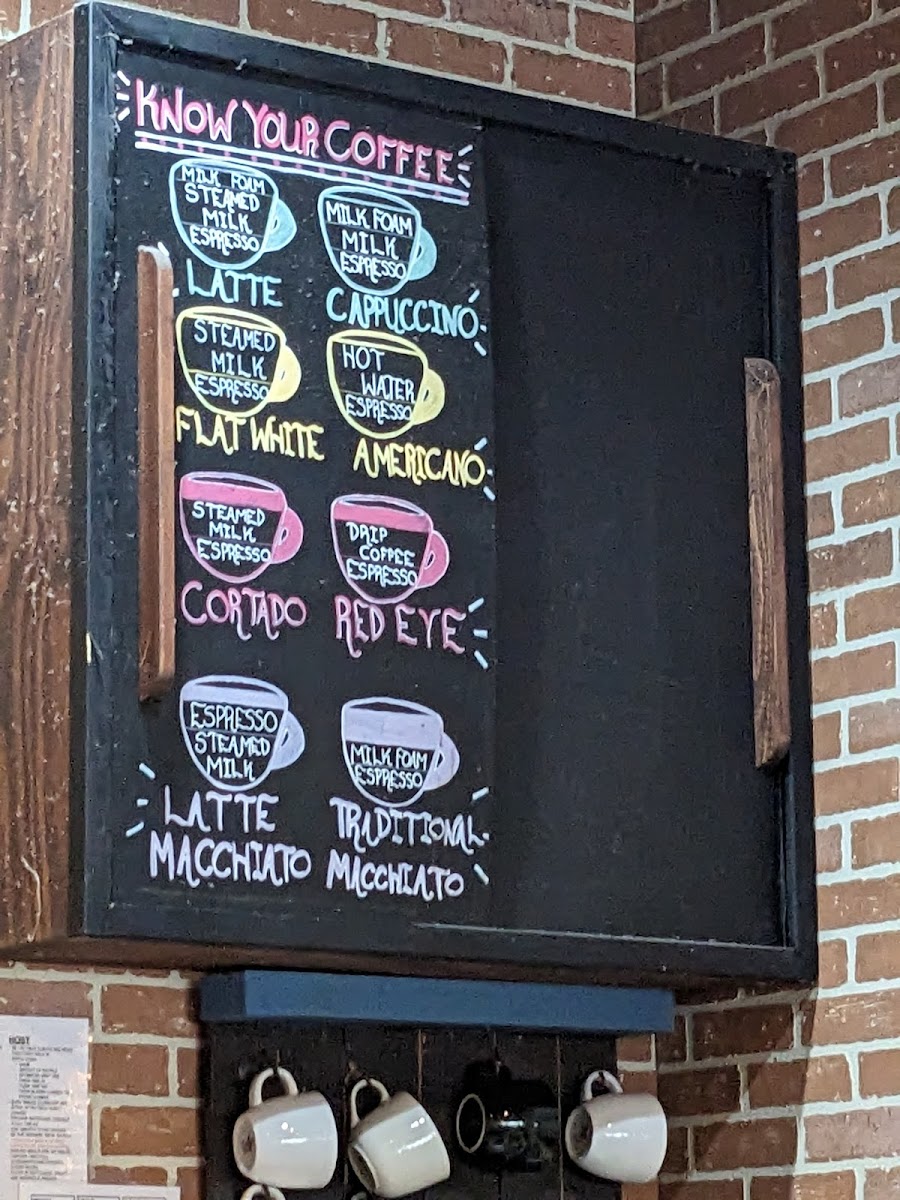 KNOW YOUR COFFEE
MILK FOAM
STEAMED
MILK
ESPRESSO
LATTE
MILK FOAM
MILK
ESPRESSO
CAPPUCCINO
STEAMED
MILK
ESPRESSO
FLAT WHITE
HOT
WATER
ESPRESSO
AMERICANO
STEAMED
MILK
ESPRESSO
CORTADO
DRIP
COFFEE
ESPRESSO
RED EYE
ESPRESSO
STEAMED
MILK
LATTE
MACCHIATO
MILK FOAM
ESPRESSO
TRADITIONAL
MACCHIATO
HOST